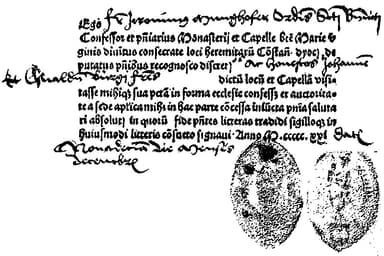 Ego fr Jeronimus Munghofer Ordis Scti Bndicti
Confessor et pniarius Monasterij et Capelle bte Marie v
ginis diuinitus consecrate loci heremitarū Cōstan̄. dyoc̄. de
putatus pn̄tibus recognosco discret Ac honestos Johannē
Et
fres dictū locū et Capellā visi
tasse mihiqz sua pctā in forma ecclesie confessos et auctorita
te a sede aplica mihi in hac parte cōcessa iniuncta pn̄ia saluta
ri absolui in quorū fide pn̄tes litteras tradidi sigilloqz in
huiusmodi litteris cōsueto signaui. Anno M. ccccc. xxj die
Mensis
decembris